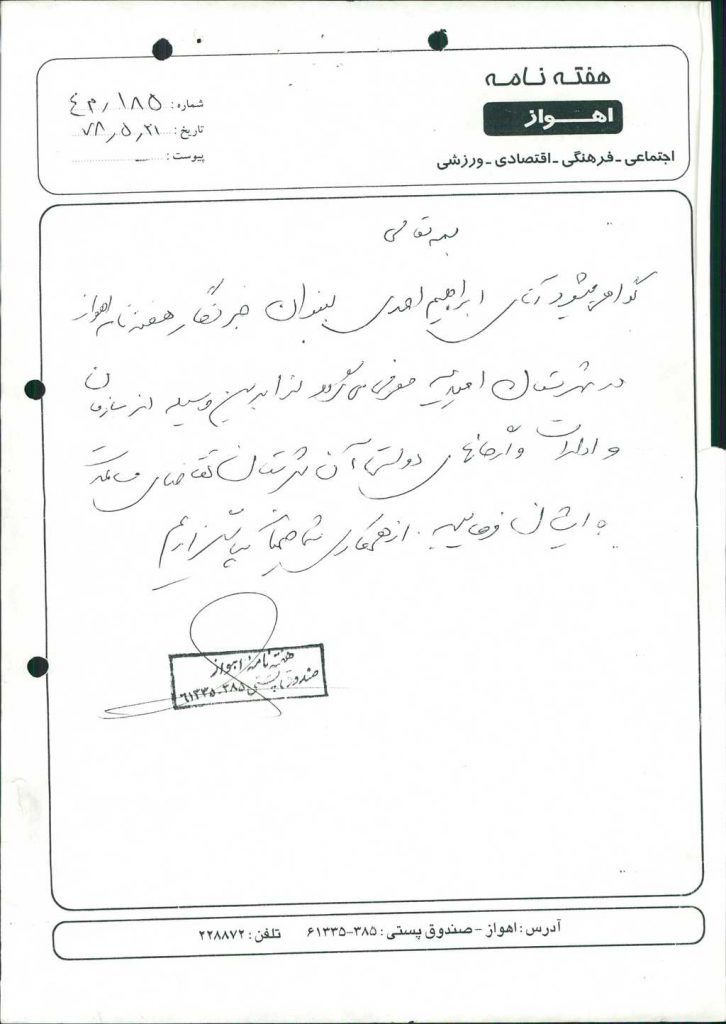 هفته نامه
اهــواز
اجتماعی - فرهنگی - اقتصادی - ورزشی
شماره: ۱۸۵
تاریخ: ۷۸٫۵٫۲۱
پیوست:
بسمه تعالی
گواهی میشود آقای ابراهیم احمدی بعنوان خبرنگار هفته نامه اهواز
در شهرستان امیدیه معرفی می گردد لذا بدین وسیله از سازمان
و ادارات و ارگانهای دولتی آن شهرستان تقاضای مساعدت
به ایشان فرمایید. از همکاری شما صمیمانه سپاسگزاریم
هفته نامه اهواز
صندوق پستی ۳۸۵-۶۱۳۳۵
آدرس: اهواز - صندوق پستی: ۳۸۵-۶۱۳۳۵ تلفن: ۲۲۸۸۷۲